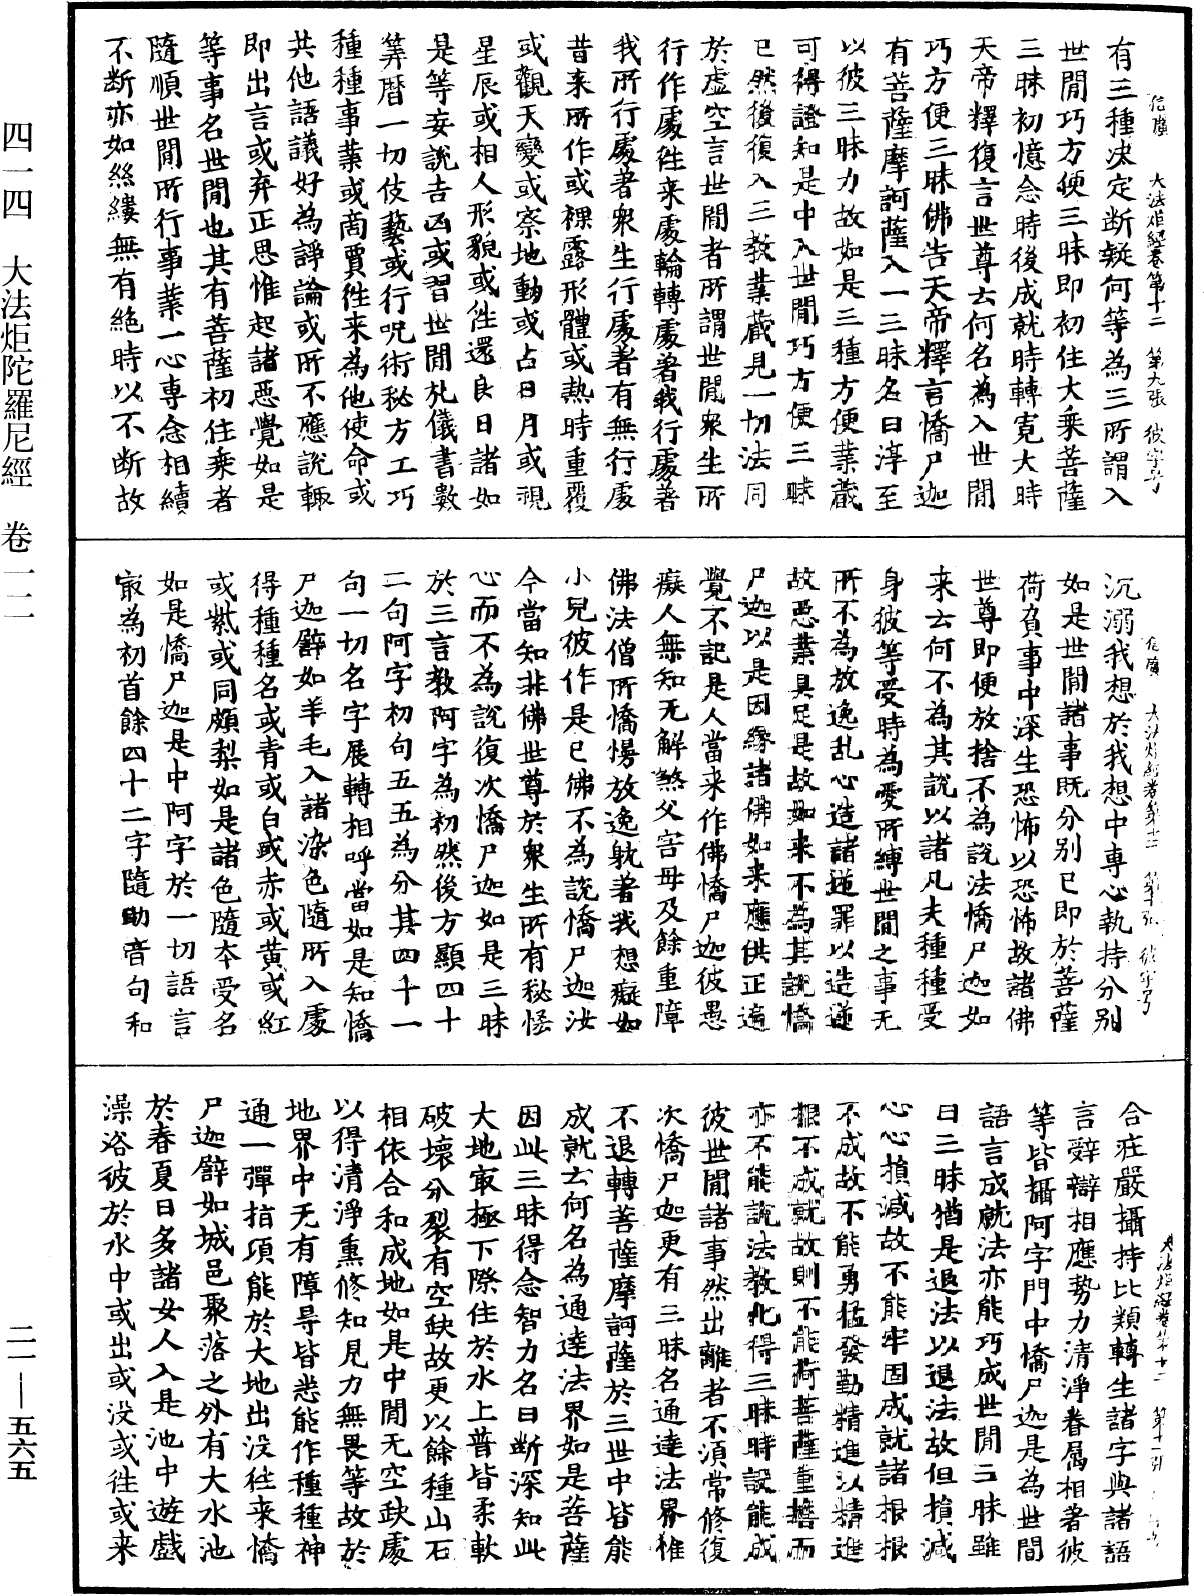 有三種决定斷疑何等為三所謂入
世間巧方便三昧即初住大乘菩薩
三昧初憶念時後成就時轉寛大時
天帝釋復言世尊云何名為入世間
巧方便三昧佛告天帝釋言憍尸迦
有菩薩摩訶薩入一三昧名曰淳至
以彼三昧力故如是三種方便業藏
可得證知是中入世間巧方便三昧
已然後復入三教業藏見一切法同
於虛空言世間者所謂世間衆生所
行作處徃來處輪轉處著我行處著
我所行處著衆生行處著有無行處
昔来所作或裸露形體或熱時重覆
或觀天變或察地動或占日月或視
星辰或相人形貌或徃還良日諸如
是等妄說吉凶或習世間礼儀書數
筭暦一切伎藝或行呪術秘方工巧
種種事業或啇賈徃来為他使命或
共他語議好為諍論或所不應說輙
即出言或弃正思惟起諸惡覺如是
等事名世間也其有菩薩初住乘者
隨順世間所行事業一心專念相續
不断亦如絲縷無有絶時以不断故
信廣　大法炬經卷第十二　第九張　彼字号
沉溺我想於我想中專心執持分別
如是世間諸事既分別已即於菩薩
荷負事中深生恐怖以恐怖故諸佛
世尊即便放捨不為說法憍尸迦如
来云何不為其說以諸凡夫種種受
身彼等受時為愛所縛世間之事无
所不為放逸乱心造諸逆罪以造逆
故惡業具足是故如来不為其說憍
尸迦以是因緣諸佛如来應供正遍
覺不記是人當来作佛憍尸迦彼愚
癡人無知无解煞父害母及餘重障
佛法僧所憍慢放逸躭著我想癡如
小兒彼作是已佛不為說憍尸迦汝
今當知非佛世尊於衆生所有秘悋
心而不為說復次憍尸迦如是三昧
於三言教阿字為初然後方顯四十
二句阿字初句五五為分其四千一
句一切名字展轉相呼當如是知憍
尸迦譬如羊毛入諸染色隨所入處
得種種名或青或白或赤或黃或紅
或紫或同頗梨如是諸色隨夲受名
如是憍尸迦是中阿字於一切語言
寂為初首餘四十二字隨助音句和
信廣　大法炬經卷第十二　第十張　彼字号
合莊嚴攝持比類轉生諸字與諸語
言辭辯相應勢力清淨眷属相著彼
等皆攝阿字門中憍尸迦是為世間
語言成就法亦能巧成世間二昧雖
曰三昧猶是退法以退法故但損減
心心損減故不能牢固成就諸根根
不成故不能勇猛發勤精進以精進
根不成就故則不能荷菩薩重擔而
亦不能說法教化得三昧時設能成
彼世間諸事然出離者不湏常修復
次憍尸迦更有三昧名通達法界惟
不退轉菩薩摩訶薩於三世中皆能
成就云何名為通達法界如是菩薩
因此三昧得念智力名曰断深知此
大地寂極下際住於水上普皆柔軟
破壞分裂有空缺故更以餘種山石
相依合和成地如是中間无空缺處
以得清淨熏修知見力無畏等故於
地界中无有障㝵皆悉能作種種神
通一彈指項能於大地出没徃来憍
尸迦譬如城邑聚落之外有大水池
於春夏日多諸女人入是池中遊戲
澡浴彼於水中或出或没或徃或来
大法炬經卷第十二　第十一張
四一四　大法炬陀羅尼經　卷一二
二一—五六五